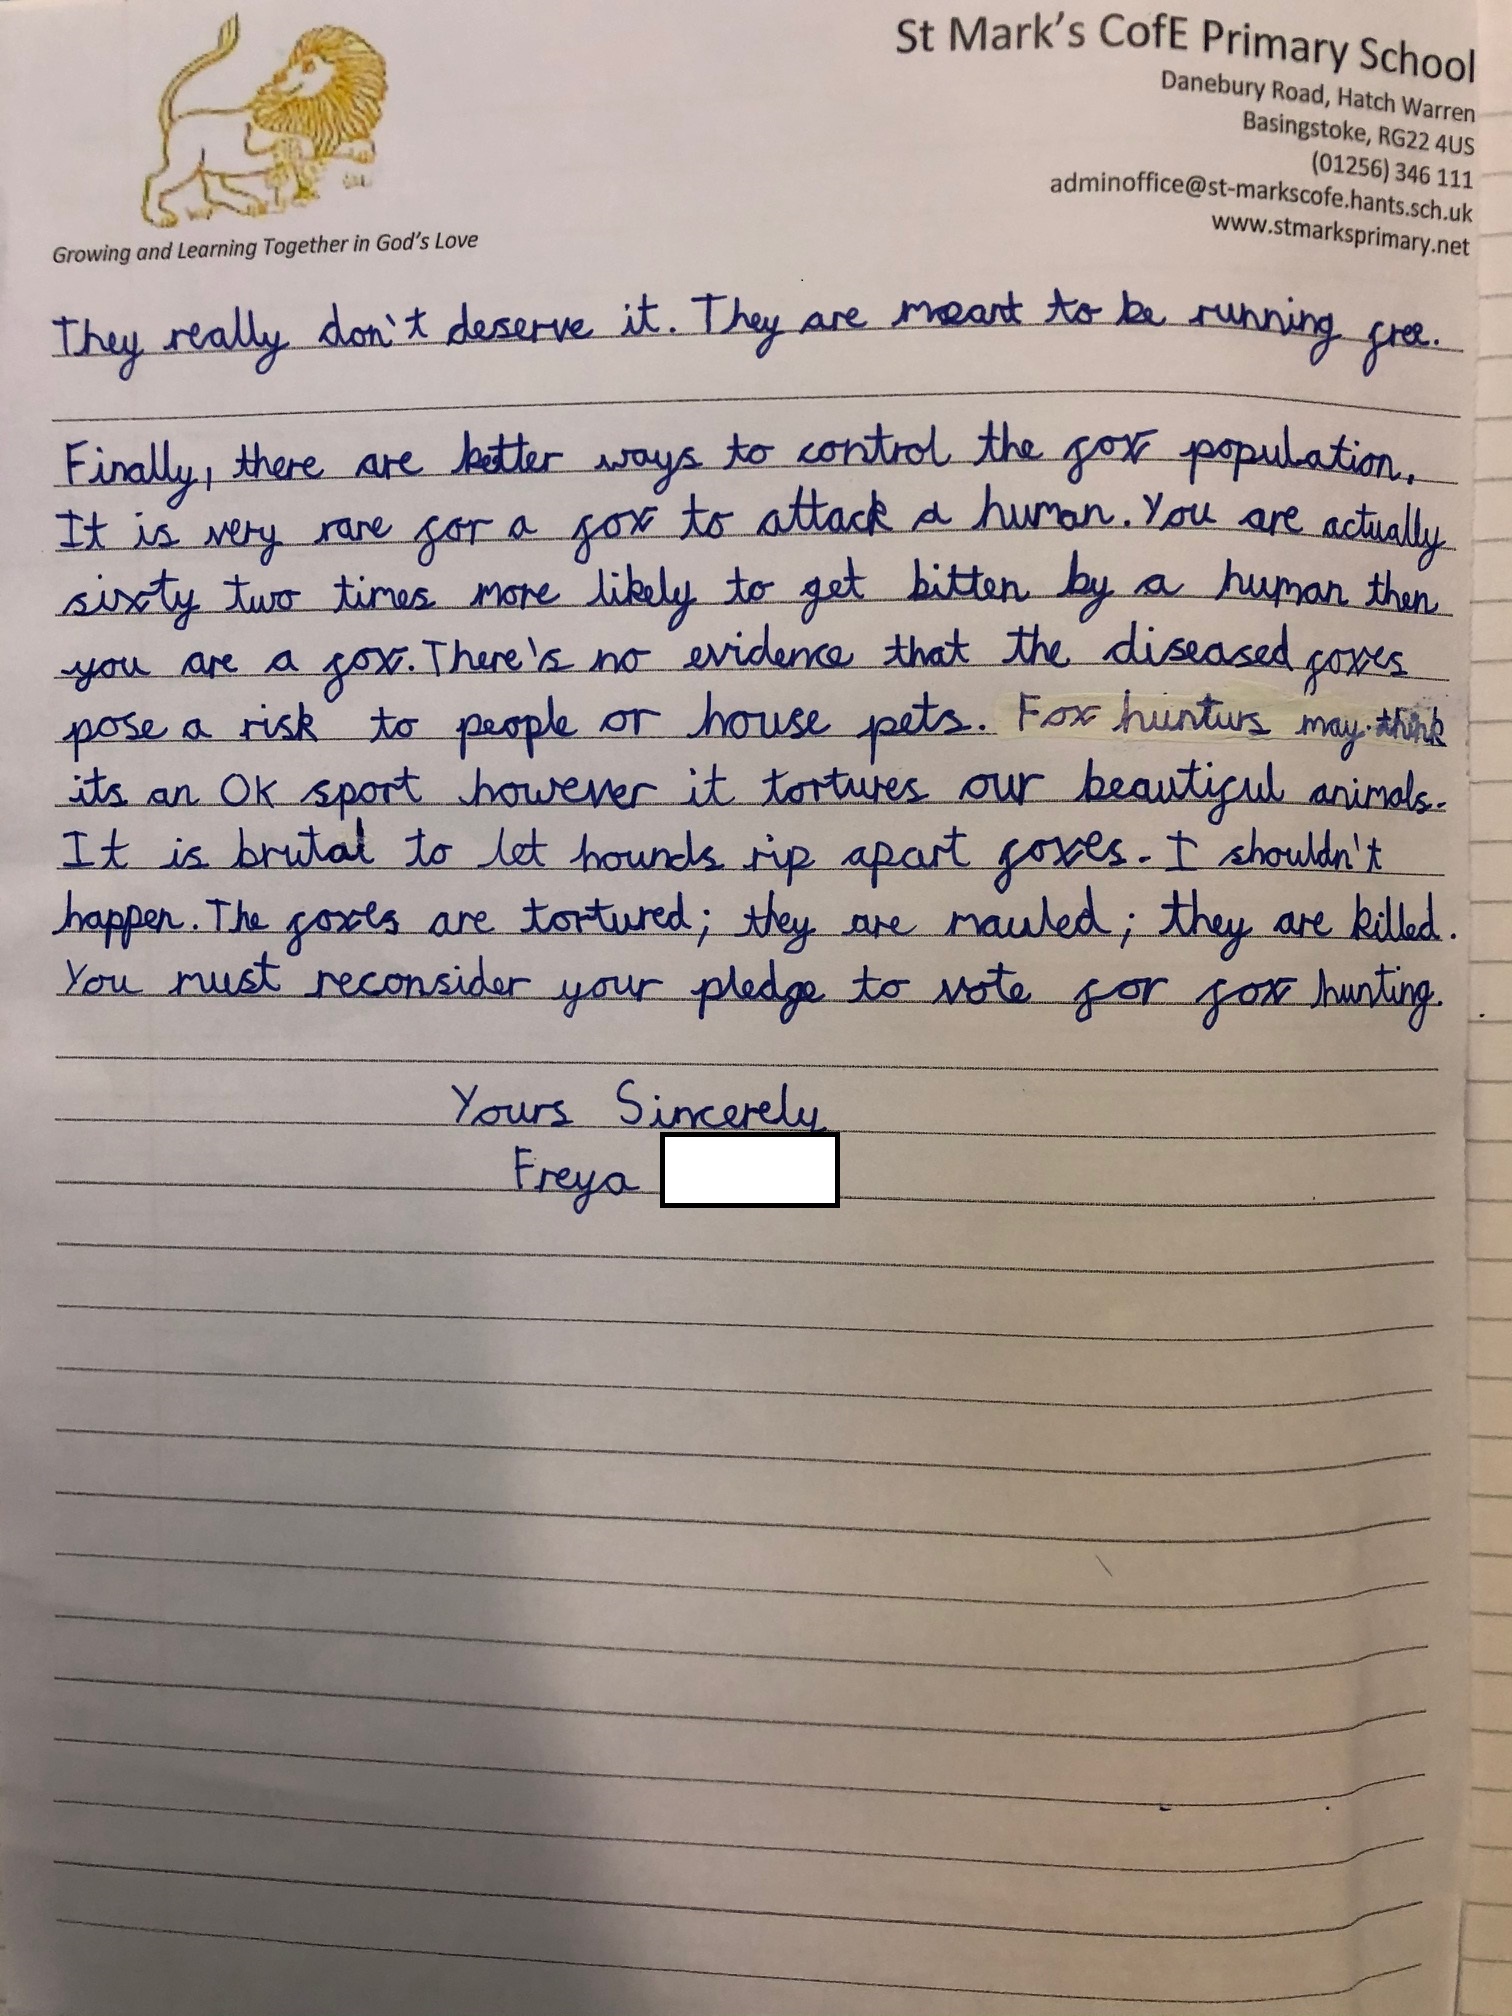 St Mark's CofE Primary School
Danebury Road, Hatch Warren
Basingstoke, RG22 4US
(01256) 346 111
adminoffice@st-markscofe.hants.sch.uk
www.stmarksprimary.net
Growing and Learning Together in God's Love
They really don't deserve it. They are meant to be running free.
Finally, there are better ways to control the fox population.
It is very rare for a fox to attack a human. You are actually
sixty two times more likely to get bitten by a human then
you are a fox. There's no evidence that the diseased foxes
pose a risk to people or house pets. Fox hunturs may think
its an OK sport however it tortures our beautiful animals.
It is brutal to let hounds rip apart foxes. I shouldn't
happen. The foxes are tortured; they are mauled; they are killed.
You must reconsider your pledge to vote for fox hunting.
Yours Sincerely
Freya